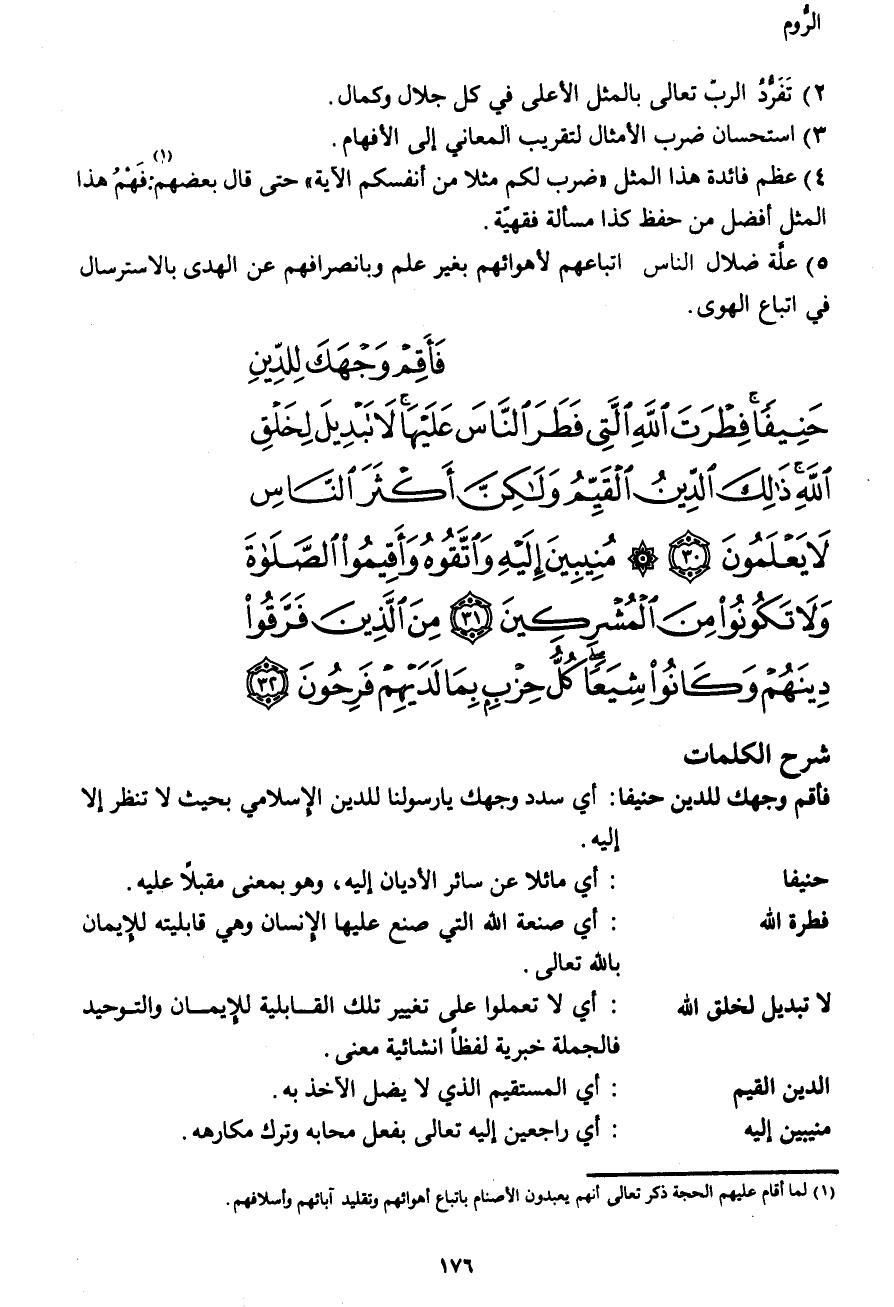 الرُّوم
٢) تَفَرُّدُ الربّ تعالى بالمثل الأعلى في كل جلال وكمال.
٣) استحسان ضرب الأمثال لتقريب المعاني إلى الأفهام.
٤) عظم فائدة هذا المثل «ضرب لكم مثلا من أنفسكم الآية» حتى قال بعضهم:(١) فَهْمُ هذا
المثل أفضل من حفظ كذا مسألة فقهيّة.
٥) علَّة ضلال الناس اتباعهم لأهوائهم بغير علم وبانصرافهم عن الهدى بالاسترسال
في اتباع الهوى.
فَأَقِمْ وَجْهَكَ لِلدِّينِ
حَنِيفًاۚ فِطْرَتَ ٱللَّهِ ٱلَّتِى فَطَرَ ٱلنَّاسَ عَلَيْهَاۚ لَا تَبْدِيلَ لِخَلْقِ
ٱللَّهِۚ ذَٰلِكَ ٱلدِّينُ ٱلْقَيِّمُ وَلَٰكِنَّ أَكْثَرَ ٱلنَّاسِ
لَا يَعْلَمُونَ ﴿٣٠﴾ ۞ مُنِيبِينَ إِلَيْهِ وَٱتَّقُوهُ وَأَقِيمُوا۟ ٱلصَّلَوٰةَ
وَلَا تَكُونُوا۟ مِنَ ٱلْمُشْرِكِينَ ﴿٣١﴾ مِنَ ٱلَّذِينَ فَرَّقُوا۟
دِينَهُمْ وَكَانُوا۟ شِيَعًاۖ كُلُّ حِزْبٍۭ بِمَا لَدَيْهِمْ فَرِحُونَ ﴿٣٢﴾
شرح الكلمات
فأقم وجهك للدين حنيفا: أي سدد وجهك يارسولنا للدين الإسلامي بحيث لا تنظر إلا
إليه.
حنيفا : أي مائلا عن سائر الأديان إليه، وهو بمعنى مقبلاً عليه.
فطرة الله : أي صنعة الله التي صنع عليها الإنسان وهي قابليته للإيمان
بالله تعالى.
لا تبديل لخلق الله : أي لا تعملوا على تغيير تلك القـــابلية للإيمـــان والتـوحيد
فالجملة خبرية لفظاً انشائية معنى.
الدين القيم : أي المستقيم الذي لا يضل الآخذ به.
منيبين إليه : أي راجعين إليه تعالى بفعل محابه وترك مكارهه.
(١) لما أقام عليهم الحجة ذكر تعالى أنهم يعبدون الأصنام باتباع أهوائهم وتقليد آبائهم وأسلافهم.
١٧٦